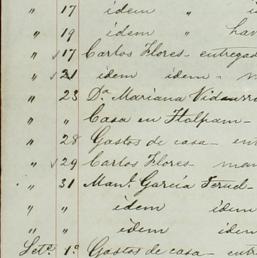 " 17 idem " id
" 19 idem hav
" 17 Carlos Flores - entregad
" 21 idem idem - m
" 23 Dª Mariana Vidaurr
" " Casa en Tlalpam -
" 28 Gastos de casa - ent
" 29 Carlos Flores - man
" 31 Manl. García Terud -
" " idem idem
" " idem idem
Sete. 1º Gastos de casa - entre